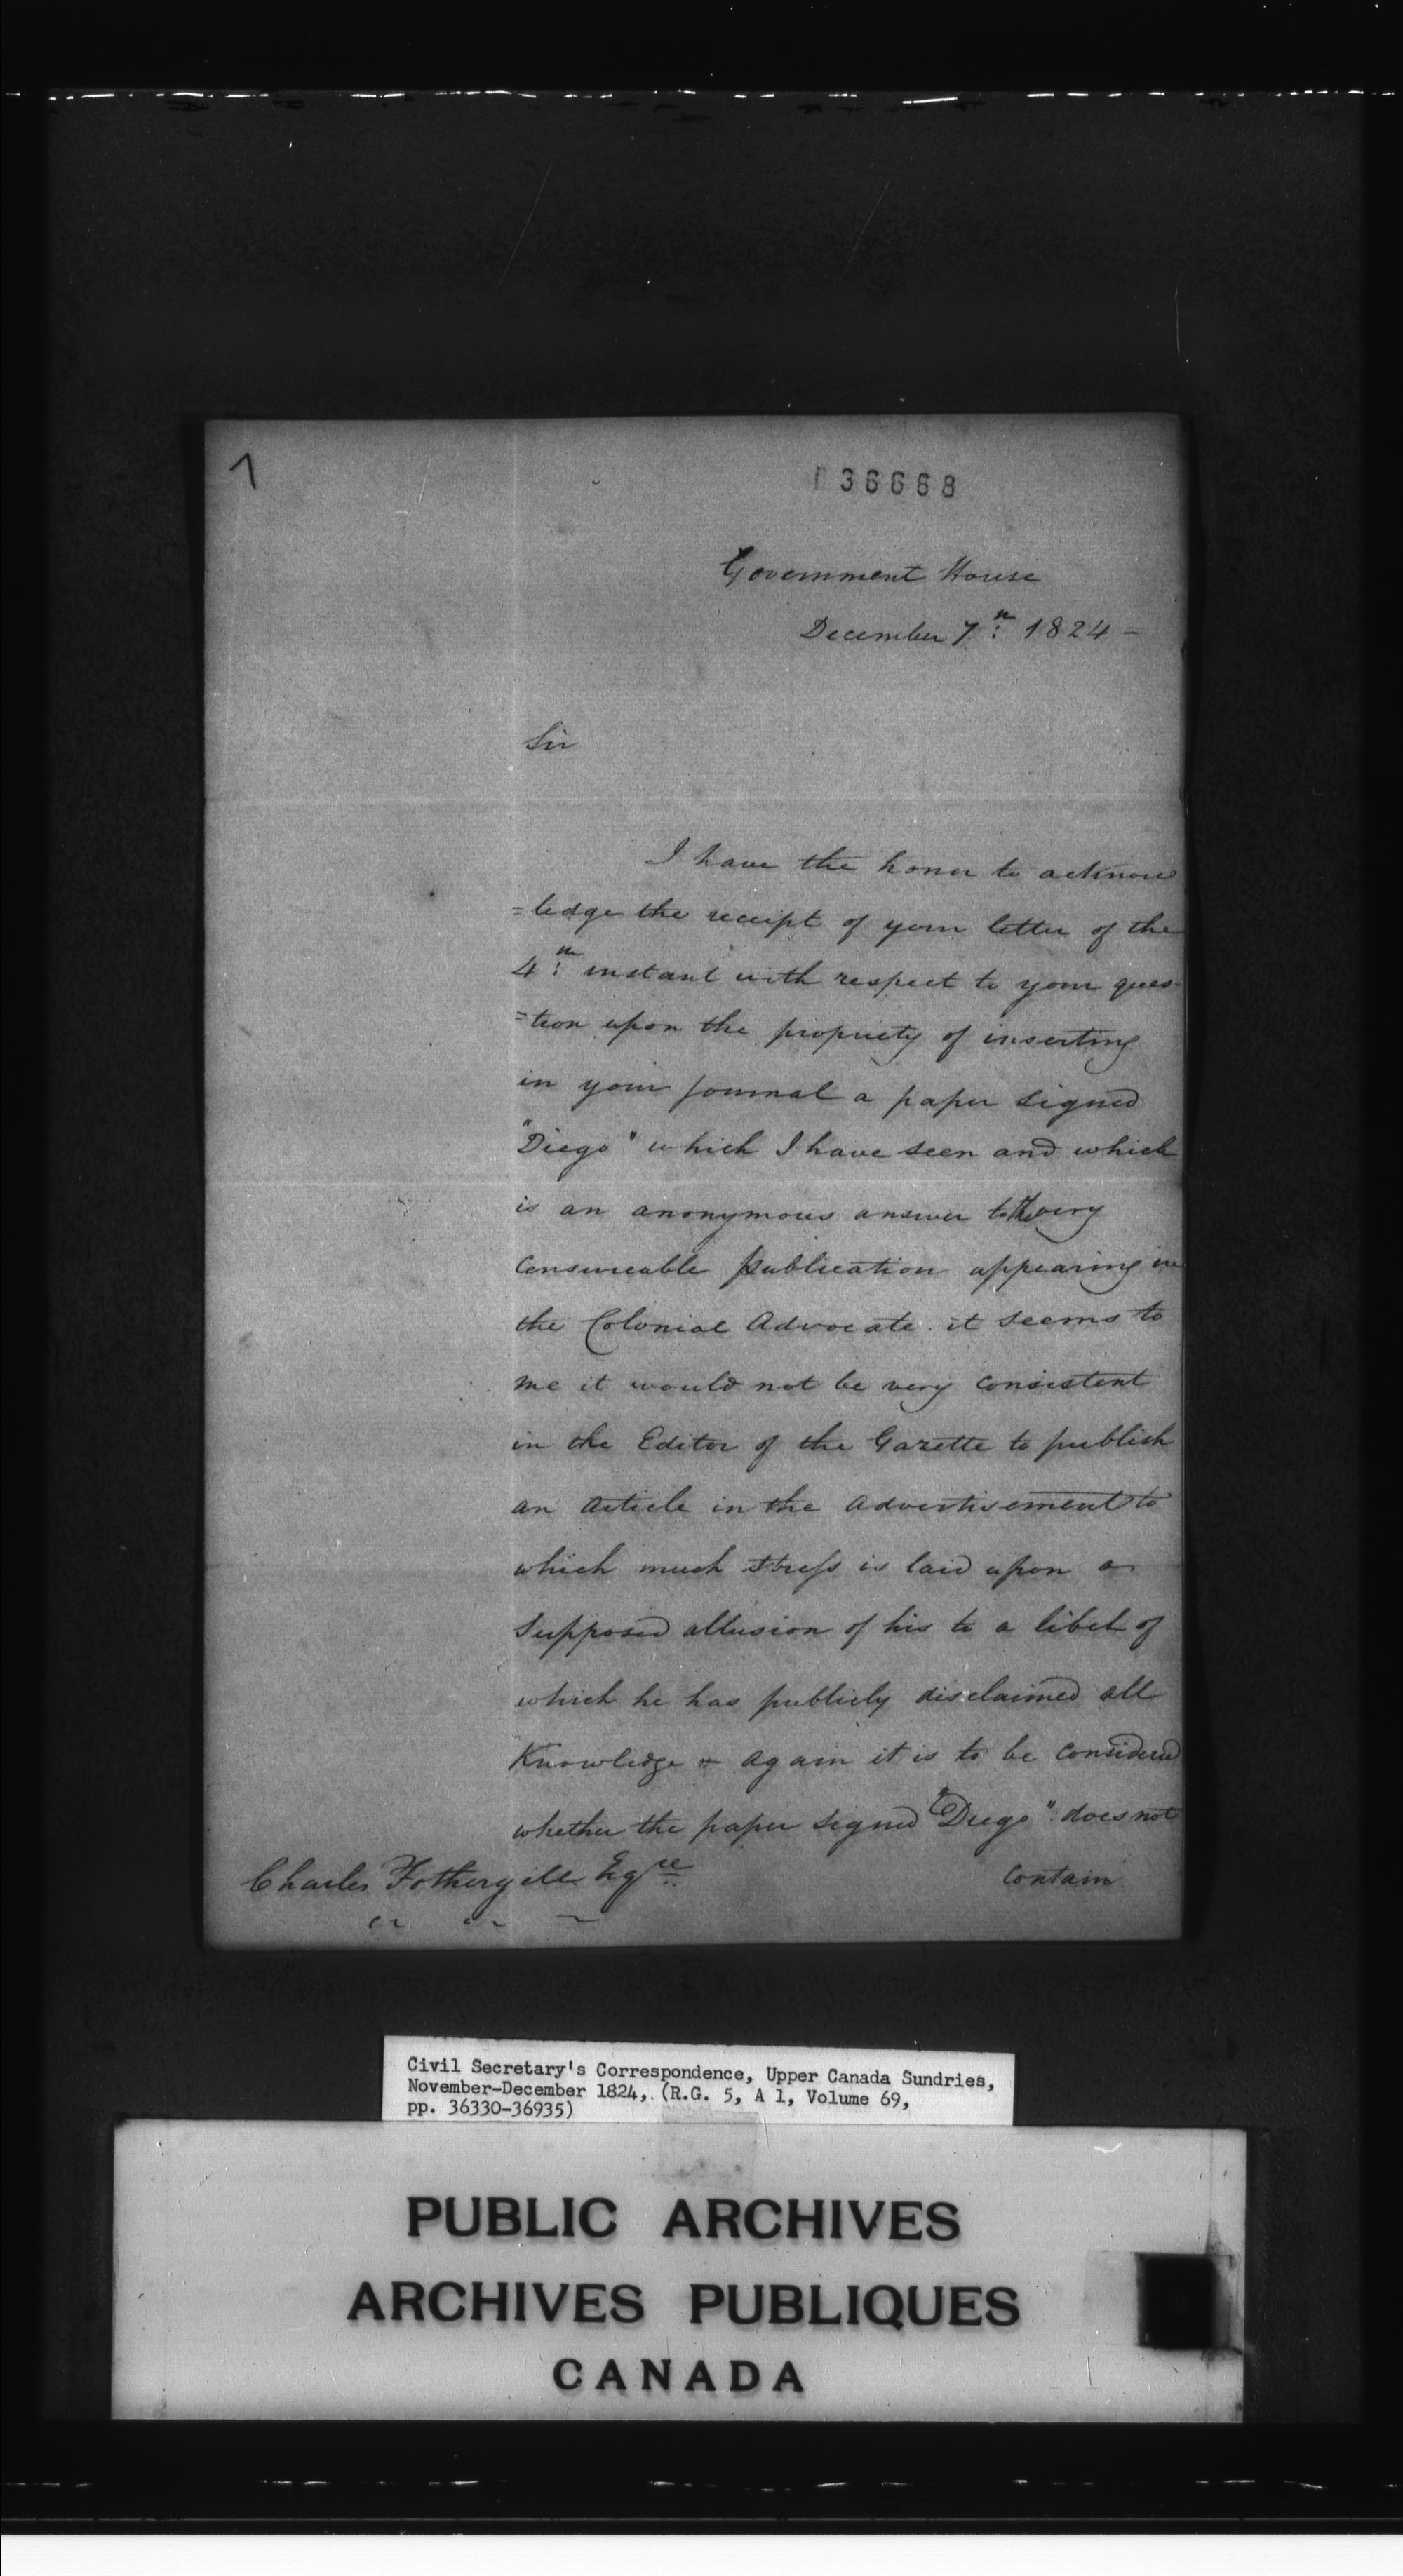 7
36668
Government House
December 7th: 1824 -
Sir
I have the honor to acknow
=ledge the receipt of your letter of the
4th: instant with respect to your ques-
=tion upon the propriety of inserting
in your journal a paper signed
"Diego" which I have seen and which
is an anonymous answer to the very
Censureable publication appearing in
the Colonial Advocate. it seems to
me it would not be very consistent
in the Editor of the Gazette to publish
an Article in the Advertisement to
which much stress is laid upon a
supposed allusion of his to a libel of
which he has publicly disclaimed all
Knowledge & again it is to be considered
whether the paper signed "Diego" does not
Contain
Charles Fothergill Esqre
Civil Secretary's Correspondence, Upper Canada Sundries,
November-December 1824, (R.G. 5, A 1, Volume 69,
pp. 36330-36935)
PUBLIC ARCHIVES
ARCHIVES PUBLIQUES
CANADA